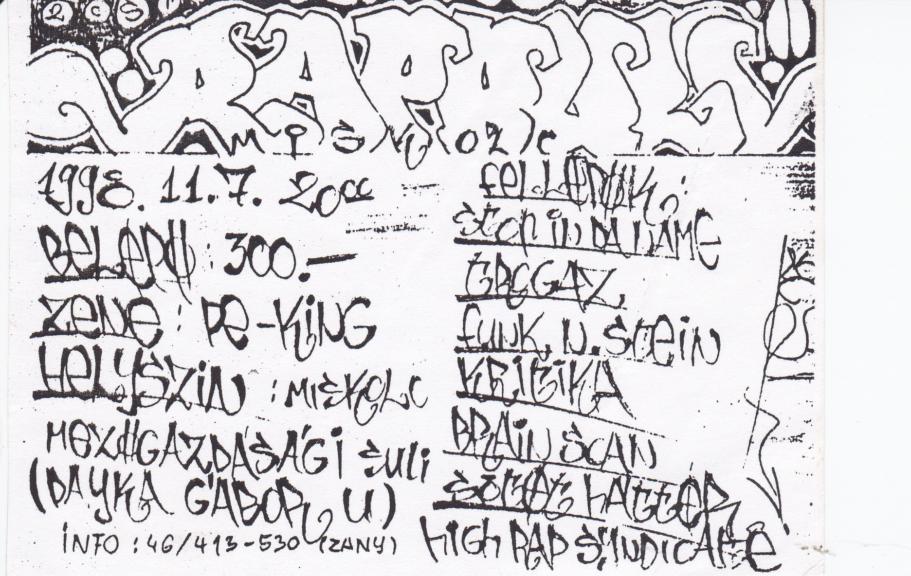 RAPDUL
Miskolc
1998. 11.7. 20oo
BELÉPŐ : 300.-
ZENE : PE-KING
HELYSZÍN : MISKOLC
MEZŐGAZDASÁGI SULI
(DAYKA GÁBOR U)
INFO : 46/413-530 (ZANY)
FELLÉPŐK :
IN DA NAME
FUNK. N. STEIN
KRITIKA
BRAIN SCAN
SÖTÉT HÁTTÉR
HIGH RAP SYNDICATE